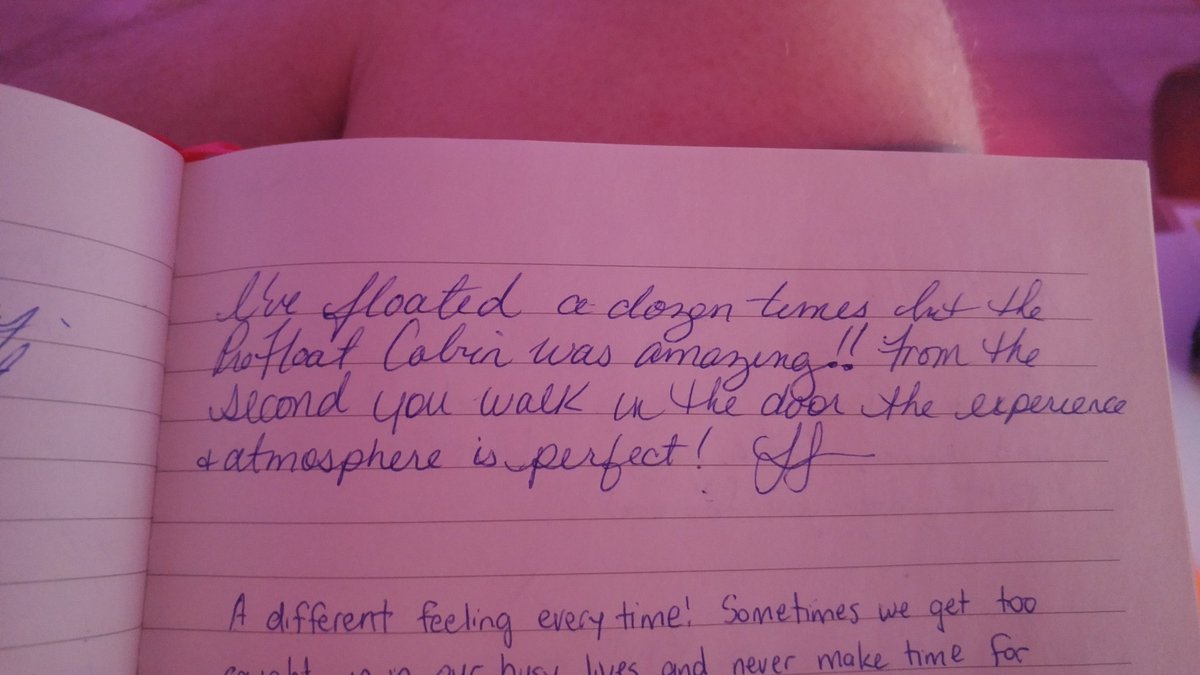 I've floated a dozen times but the
ProFloat Cabin was amazing!! From the
second you walk in the door the experience
& atmosphere is perfect!
A different feeling every time! Sometimes we get too
caught up in our busy lives and never make time for